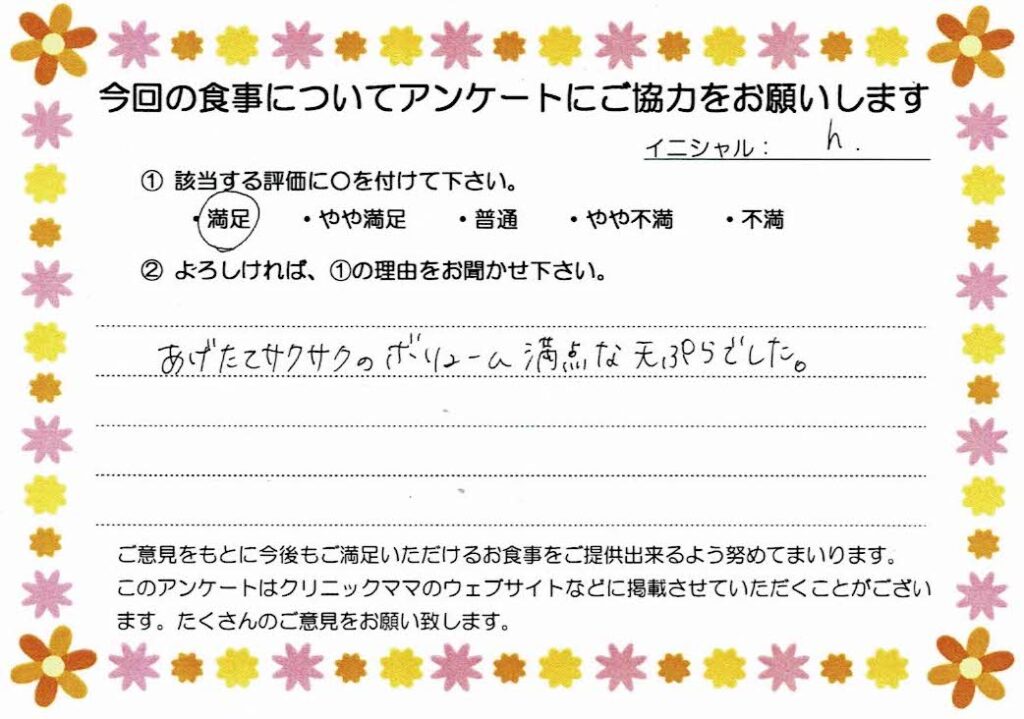 今回の食事についてアンケートにご協力をお願いします
イニシャル： h.
① 該当する評価に〇を付けて下さい。
・満足 ・やや満足 ・普通 ・やや不満 ・不満
② よろしければ、①の理由をお聞かせ下さい。
あげたてサクサクのボリューム満点な天ぷらでした。
ご意見をもとに今後もご満足いただけるお食事をご提供出来るよう努めてまいります。
このアンケートはクリニックママのウェブサイトなどに掲載させていただくことがござい
ます。たくさんのご意見をお願い致します。